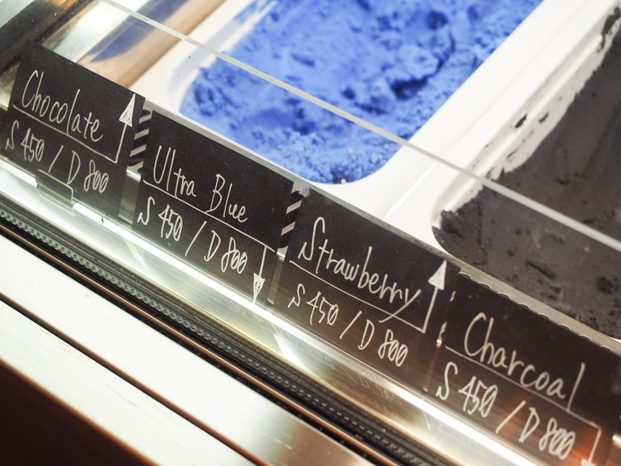 Chocolate
S 450 / D 800
Ultra Blue
S 450 / D 800
Strawberry
S 450 / D 800
Charcoal
S 450 / D 800